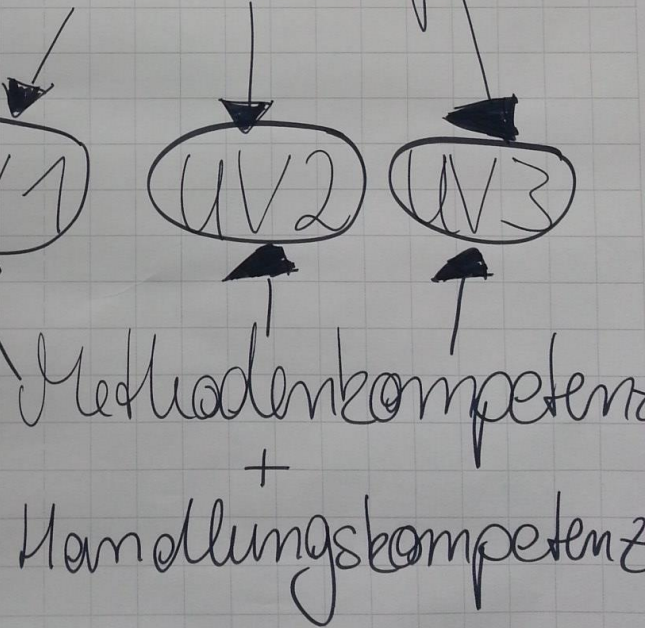 V1 UV2 UV3
Methodenkompetenz
+
Handlungskompetenz